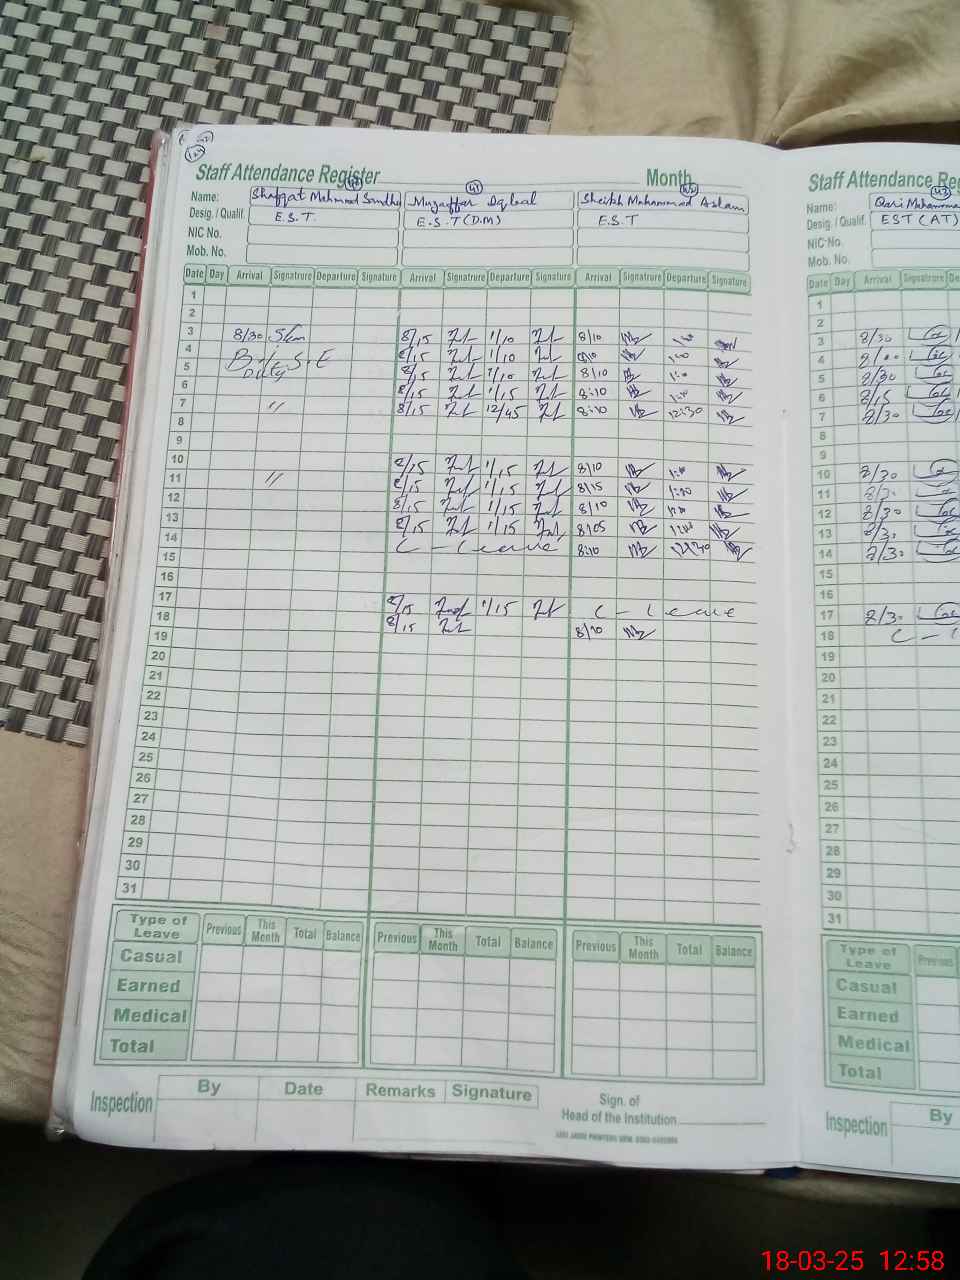 Staff Attendance Register Month
Name: Shafqat Mahmood Sandhu Muzaffar Iqbal Sheikh Muhammad Aslam
Desig. / Qualif. E.S.T. E.S.T (D.M) E.S.T
NIC No.
Mob. No.
Date Day Arrival Signatrure Departure Signature Arrival Signatrure Departure Signature Arrival Signatrure Departure Signature
1
2
3 8/30 8/15 1/10 8/10
4 8/15 1/10 8/10 1:00
5 Duty 8/15 1/10 8/10 1:00
6 8/15 1/15 8:10 1:00
7 " 8/15 12/45 8:10 12:30
8
9
10 8/15 1/15 8/10 1:00
11 " 8/15 1/15 8/15 1:00
12 8/15 1/15 8/10 1:00
13 8/15 1/15 8/05 1:00
14 C - Leave 8:10 12:30
15
16
17 8/15 1/15 C - Leave
18 8/15 8/10
19
20
21
22
23
24
25
26
27
28
29
30
31
Type of Leave Previous This Month Total Balance Previous This Month Total Balance Previous This Month Total Balance
Casual
Earned
Medical
Total
Inspection By Date Remarks Signature
Sign. of
Head of the Institution
Staff Attendance Reg
Name: Qari Muhamma
Desig. / Qualif. EST (AT)
NIC No.
Mob. No.
Date Day Arrival Signatrure De
1
2
3 8/30
4 8/00
5 8/30
6 8/15
7 8/30
8
9
10 8/30
11 8/30
12 8/30
13 8/30
14 8/30
15
16
17 8/30
18 C -
19
20
21
22
23
24
25
26
27
28
29
30
31
Type of Leave Previous
Casual
Earned
Medical
Total
Inspection By
18-03-25 12:58